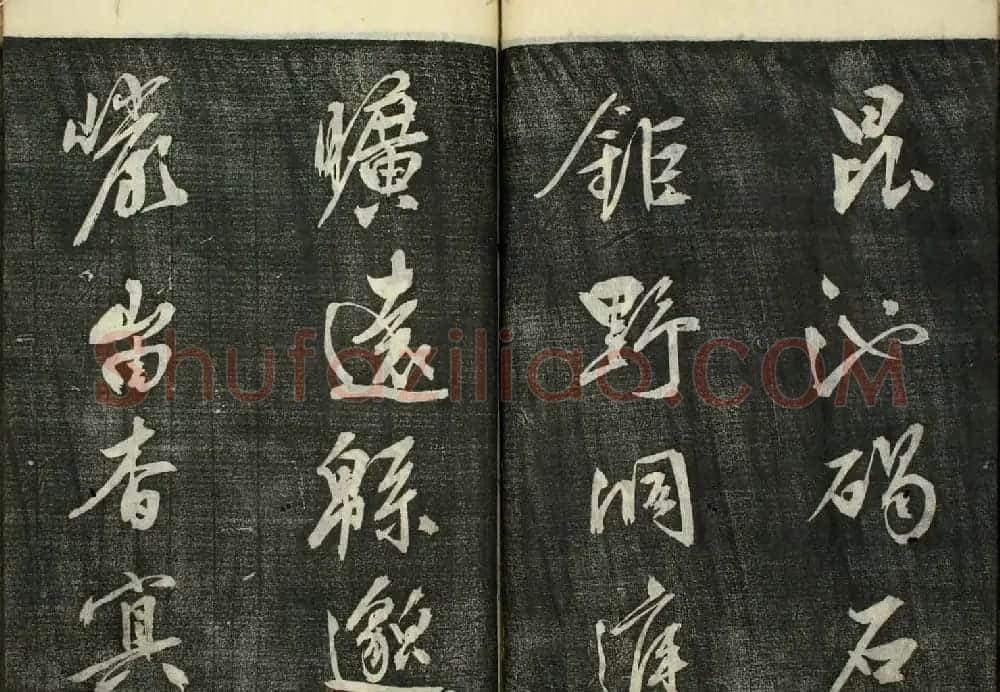 昆池碣石
鉅野洞庭
曠遠緜邈
巖岫杳冥
Shufaziliao.COM